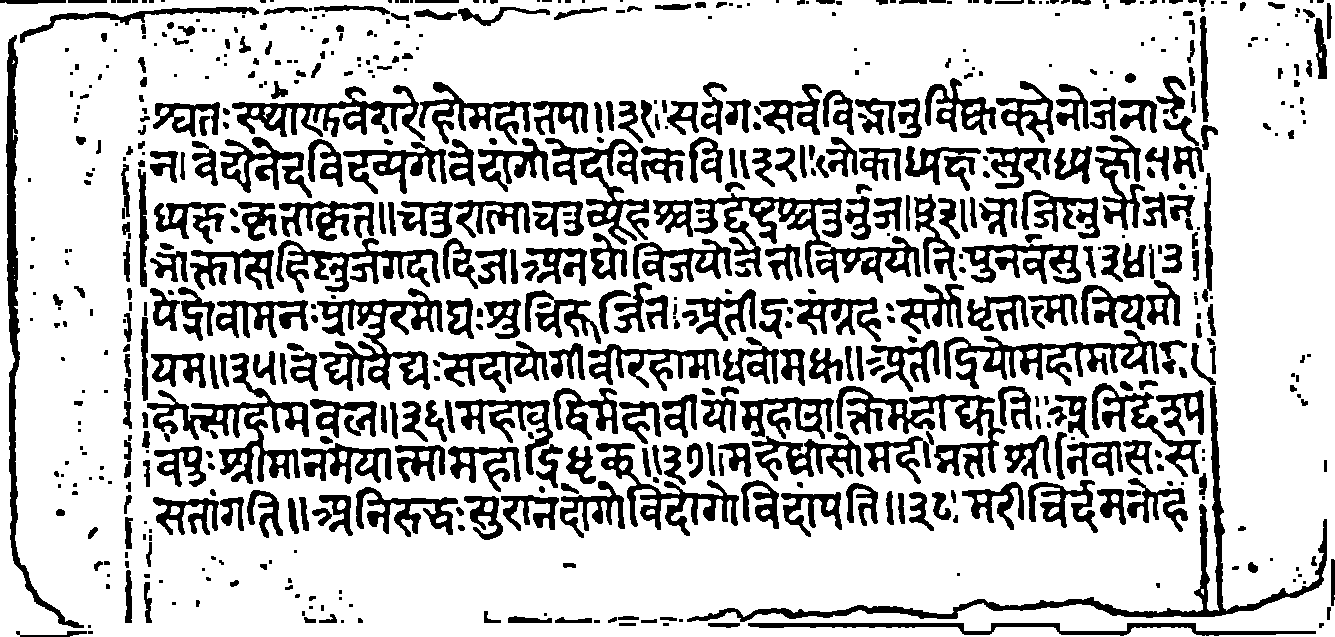 श्वतः स्थाणुर्वरारोहोमहातपा॥३१॥सर्वगःसर्वविद्भानुर्विष्वक्सेनोजनार्द्द
न। वेदोवेदविदव्यंगोवेदांगोवेदवित्कवि॥३२॥लोकाध्यक्षःसुराध्यक्षोधर्मा
ध्यक्षःकृताकृत॥चतुरात्माचतुर्व्यूहश्चतुर्द्दंष्ट्रश्चतुर्भुज॥३३॥भ्राजिष्णुर्भोजनं
भोक्तासहिष्णुर्जगदादिज।अनघोविजयोजेताविश्वयोनिःपुनर्वसु।३४।उ
पेंद्रोवामनःप्रांशुरमोघःशुचिरूर्जित।अतींद्रःसंग्रहःसर्गोधृतात्मानियमो
यम॥३५।वेद्योवैद्यःसदायोगीवीरहामाधवोमधु॥अतींद्रियोमहामायोम
होत्साहोमबल॥३६।महाबुद्धिर्महावीर्योमहाशक्तिमहाद्युति॥अनिर्द्देश्य
वपुःश्रीमानमेयात्मामहाद्रिधृक्॥३७॥महेष्वासोमहीभर्त्ताश्रीनिवासःस
सतांगति॥अनिरुद्धःसुरानंदोगोविंदोगोविदांपति॥३८।मरीचिर्दमनोहं